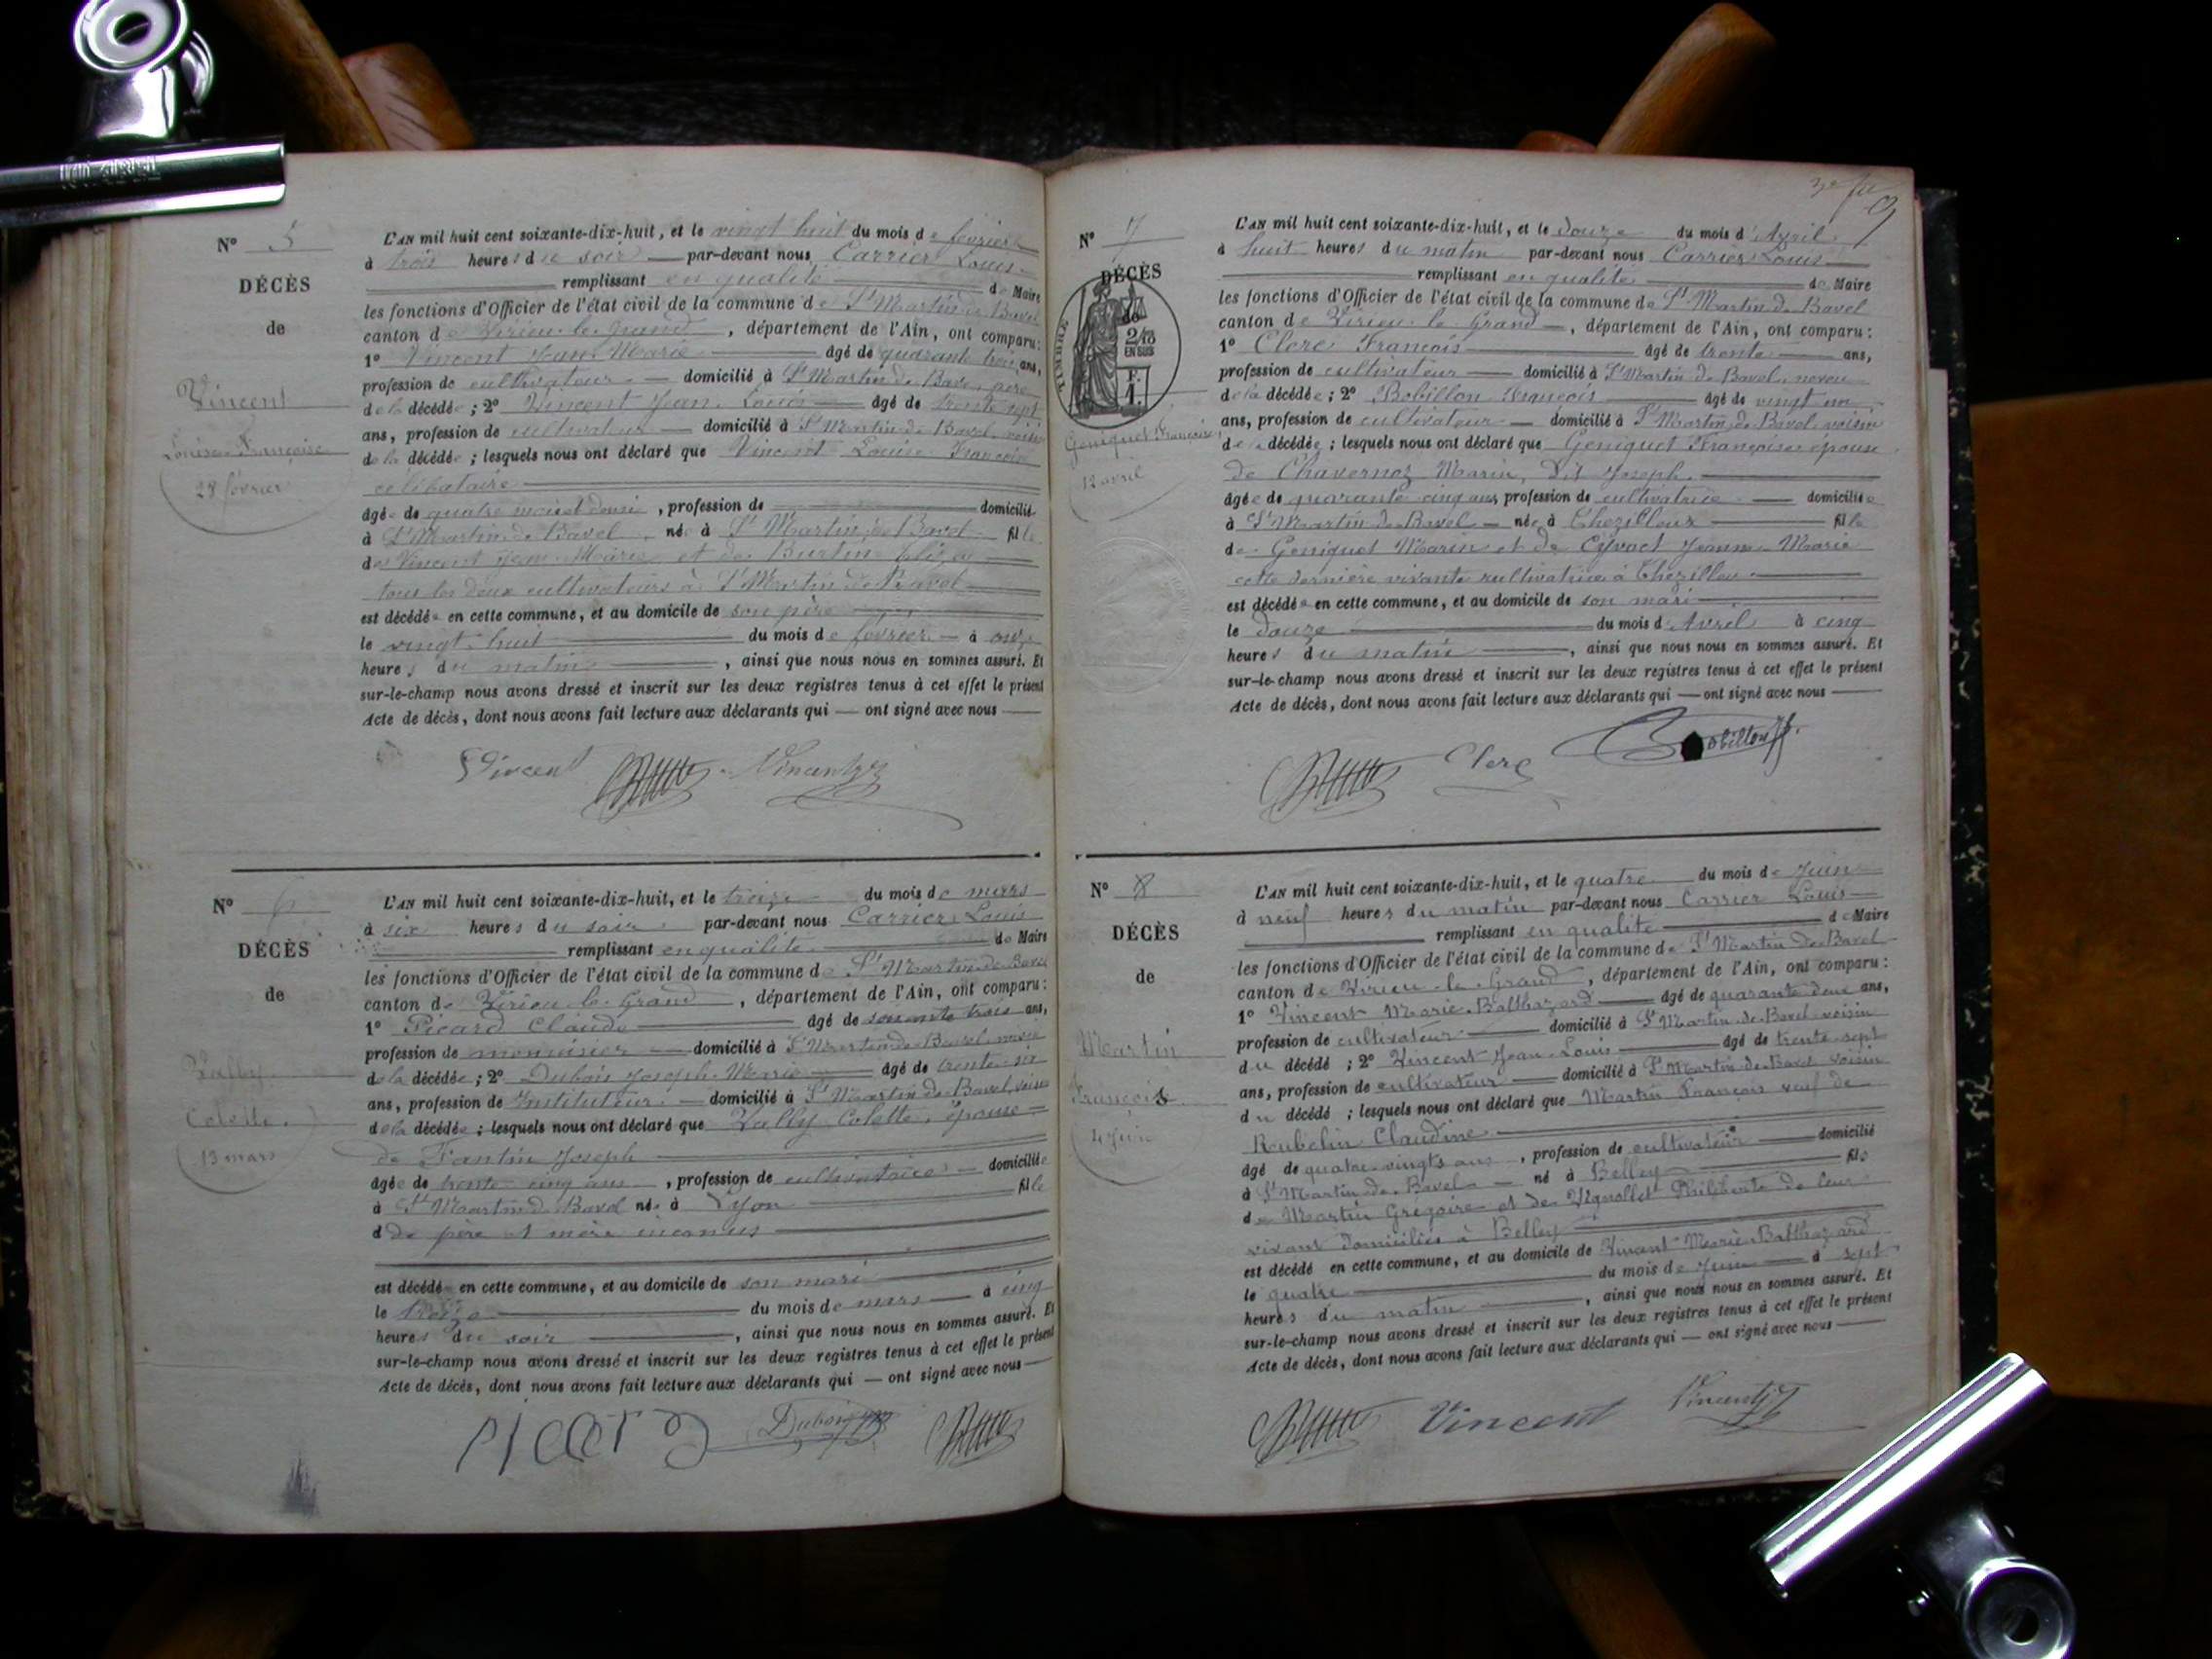 N° 5
DÉCÈS
de
Vincent
Louise Françoise
28 février
L'AN mil huit cent soixante-dix-huit, et le vingt huit du mois de février
à trois heures du soir par-devant nous Carrier Louis
remplissant en qualité de Maire
les fonctions d'Officier de l'état civil de la commune de St Martin de Bavel
canton de Virieu-le-Grand, département de l'Ain, ont comparu:
1° Vincent Jean Marie âgé de quarante trois ans,
profession de cultivateur domicilié à St Martin de Bavel, père
de la décédée; 2° Vincent Jean Louis âgé de trente sept
ans, profession de cultivateur domicilié à St Martin de Bavel, voisin
de la décédée; lesquels nous ont déclaré que Vincent Louise Françoise
célibataire
âgée de quatre mois et demi, profession de domicilié
à St Martin de Bavel née à St Martin de Bavel fille
de Vincent Jean Marie et de Burtin
tous les deux cultivateurs à St Martin de Bavel
est décédée en cette commune, et au domicile de son père
le vingt huit du mois de février à onze
heures du matin, ainsi que nous nous en sommes assuré. Et
sur-le-champ nous avons dressé et inscrit sur les deux registres tenus à cet effet le présent
Acte de décès, dont nous avons fait lecture aux déclarants qui — ont signé avec nous
Vincent
N° 6
DÉCÈS
de
Vally
Colette.
13 mars
L'AN mil huit cent soixante-dix-huit, et le treize du mois de mars
à six heures du soir par-devant nous Carrier Louis
remplissant en qualité de Maire
les fonctions d'Officier de l'état civil de la commune de St Martin de Bavel
canton de Virieu-le-Grand, département de l'Ain, ont comparu:
1° Picard Claude âgé de soixante trois ans,
profession de menuisier domicilié à St Martin de Bavel,
de la décédée; 2° Dubois Joseph Marie âgé de trente six
ans, profession de Instituteur domicilié à St Martin de Bavel, voisin
de la décédée; lesquels nous ont déclaré que Vally Colette, épouse
de Fantin Joseph
âgée de trente cinq ans, profession de cultivatrice domiciliée
à St Martin de Bavel née à Lyon fille
d de père et mère inconnus
est décédée en cette commune, et au domicile de son mari
le treize du mois de mars à cinq
heures du soir, ainsi que nous nous en sommes assuré. Et
sur-le-champ nous avons dressé et inscrit sur les deux registres tenus à cet effet le présent
Acte de décès, dont nous avons fait lecture aux déclarants qui — ont signé avec nous
Picard Dubois
N° 7
DÉCÈS
de
TIMBRE
2/10
EN SUS
F.
1.
Geniquet Françoise
12 avril
L'AN mil huit cent soixante-dix-huit, et le douze du mois d'Avril
à huit heures du matin par-devant nous Carrier Louis
remplissant en qualité de Maire
les fonctions d'Officier de l'état civil de la commune de St Martin de Bavel
canton de Virieu-le-Grand, département de l'Ain, ont comparu:
1° Clerc François âgé de trente ans,
profession de cultivateur domicilié à St Martin de Bavel, neveu
de la décédée; 2° Bobillon âgé de vingt un
ans, profession de cultivateur domicilié à St Martin de Bavel voisin
de la décédée; lesquels nous ont déclaré que Geniquet Françoise épouse
de Chavernoz Marin, dit Joseph
âgée de quarante cinq ans, profession de cultivatrice domiciliée
à St Martin de Bavel née à Chezilleux fille
de Geniquet Marin et de Cyvoct Jeanne Marie
cette dernière vivante cultivatrice à Chezilleu
est décédée en cette commune, et au domicile de son mari
le douze du mois d'Avril à cinq
heures du matin, ainsi que nous nous en sommes assuré. Et
sur-le-champ nous avons dressé et inscrit sur les deux registres tenus à cet effet le présent
Acte de décès, dont nous avons fait lecture aux déclarants qui — ont signé avec nous
Clerc Bobillon
N° 8
DÉCÈS
de
Martin
François
4 Juin
L'AN mil huit cent soixante-dix-huit, et le quatre du mois de Juin
à neuf heures du matin par-devant nous Carrier Louis
remplissant en qualité de Maire
les fonctions d'Officier de l'état civil de la commune de St Martin de Bavel
canton de Virieu-le-Grand, département de l'Ain, ont comparu:
1° Vincent Marie Balthazard âgé de quarante deux ans,
profession de cultivateur domicilié à St Martin de Bavel voisin
du décédé; 2° Vincent Jean Louis âgé de trente sept
ans, profession de cultivateur domicilié à St Martin de Bavel voisin
du décédé; lesquels nous ont déclaré que Martin François veuf de
Roubelin Claudine
âgé de quatre-vingts ans, profession de cultivateur domicilié
à St Martin de Bavel né à Belley fils
de Martin Grégoire et de Vignollet Philiberte de leur
vivant domiciliés à Belley
est décédé en cette commune, et au domicile de Vincent Marie Balthazard
le quatre du mois de Juin à sept
heures du matin, ainsi que nous nous en sommes assuré. Et
sur-le-champ nous avons dressé et inscrit sur les deux registres tenus à cet effet le présent
Acte de décès, dont nous avons fait lecture aux déclarants qui — ont signé avec nous
Vincent